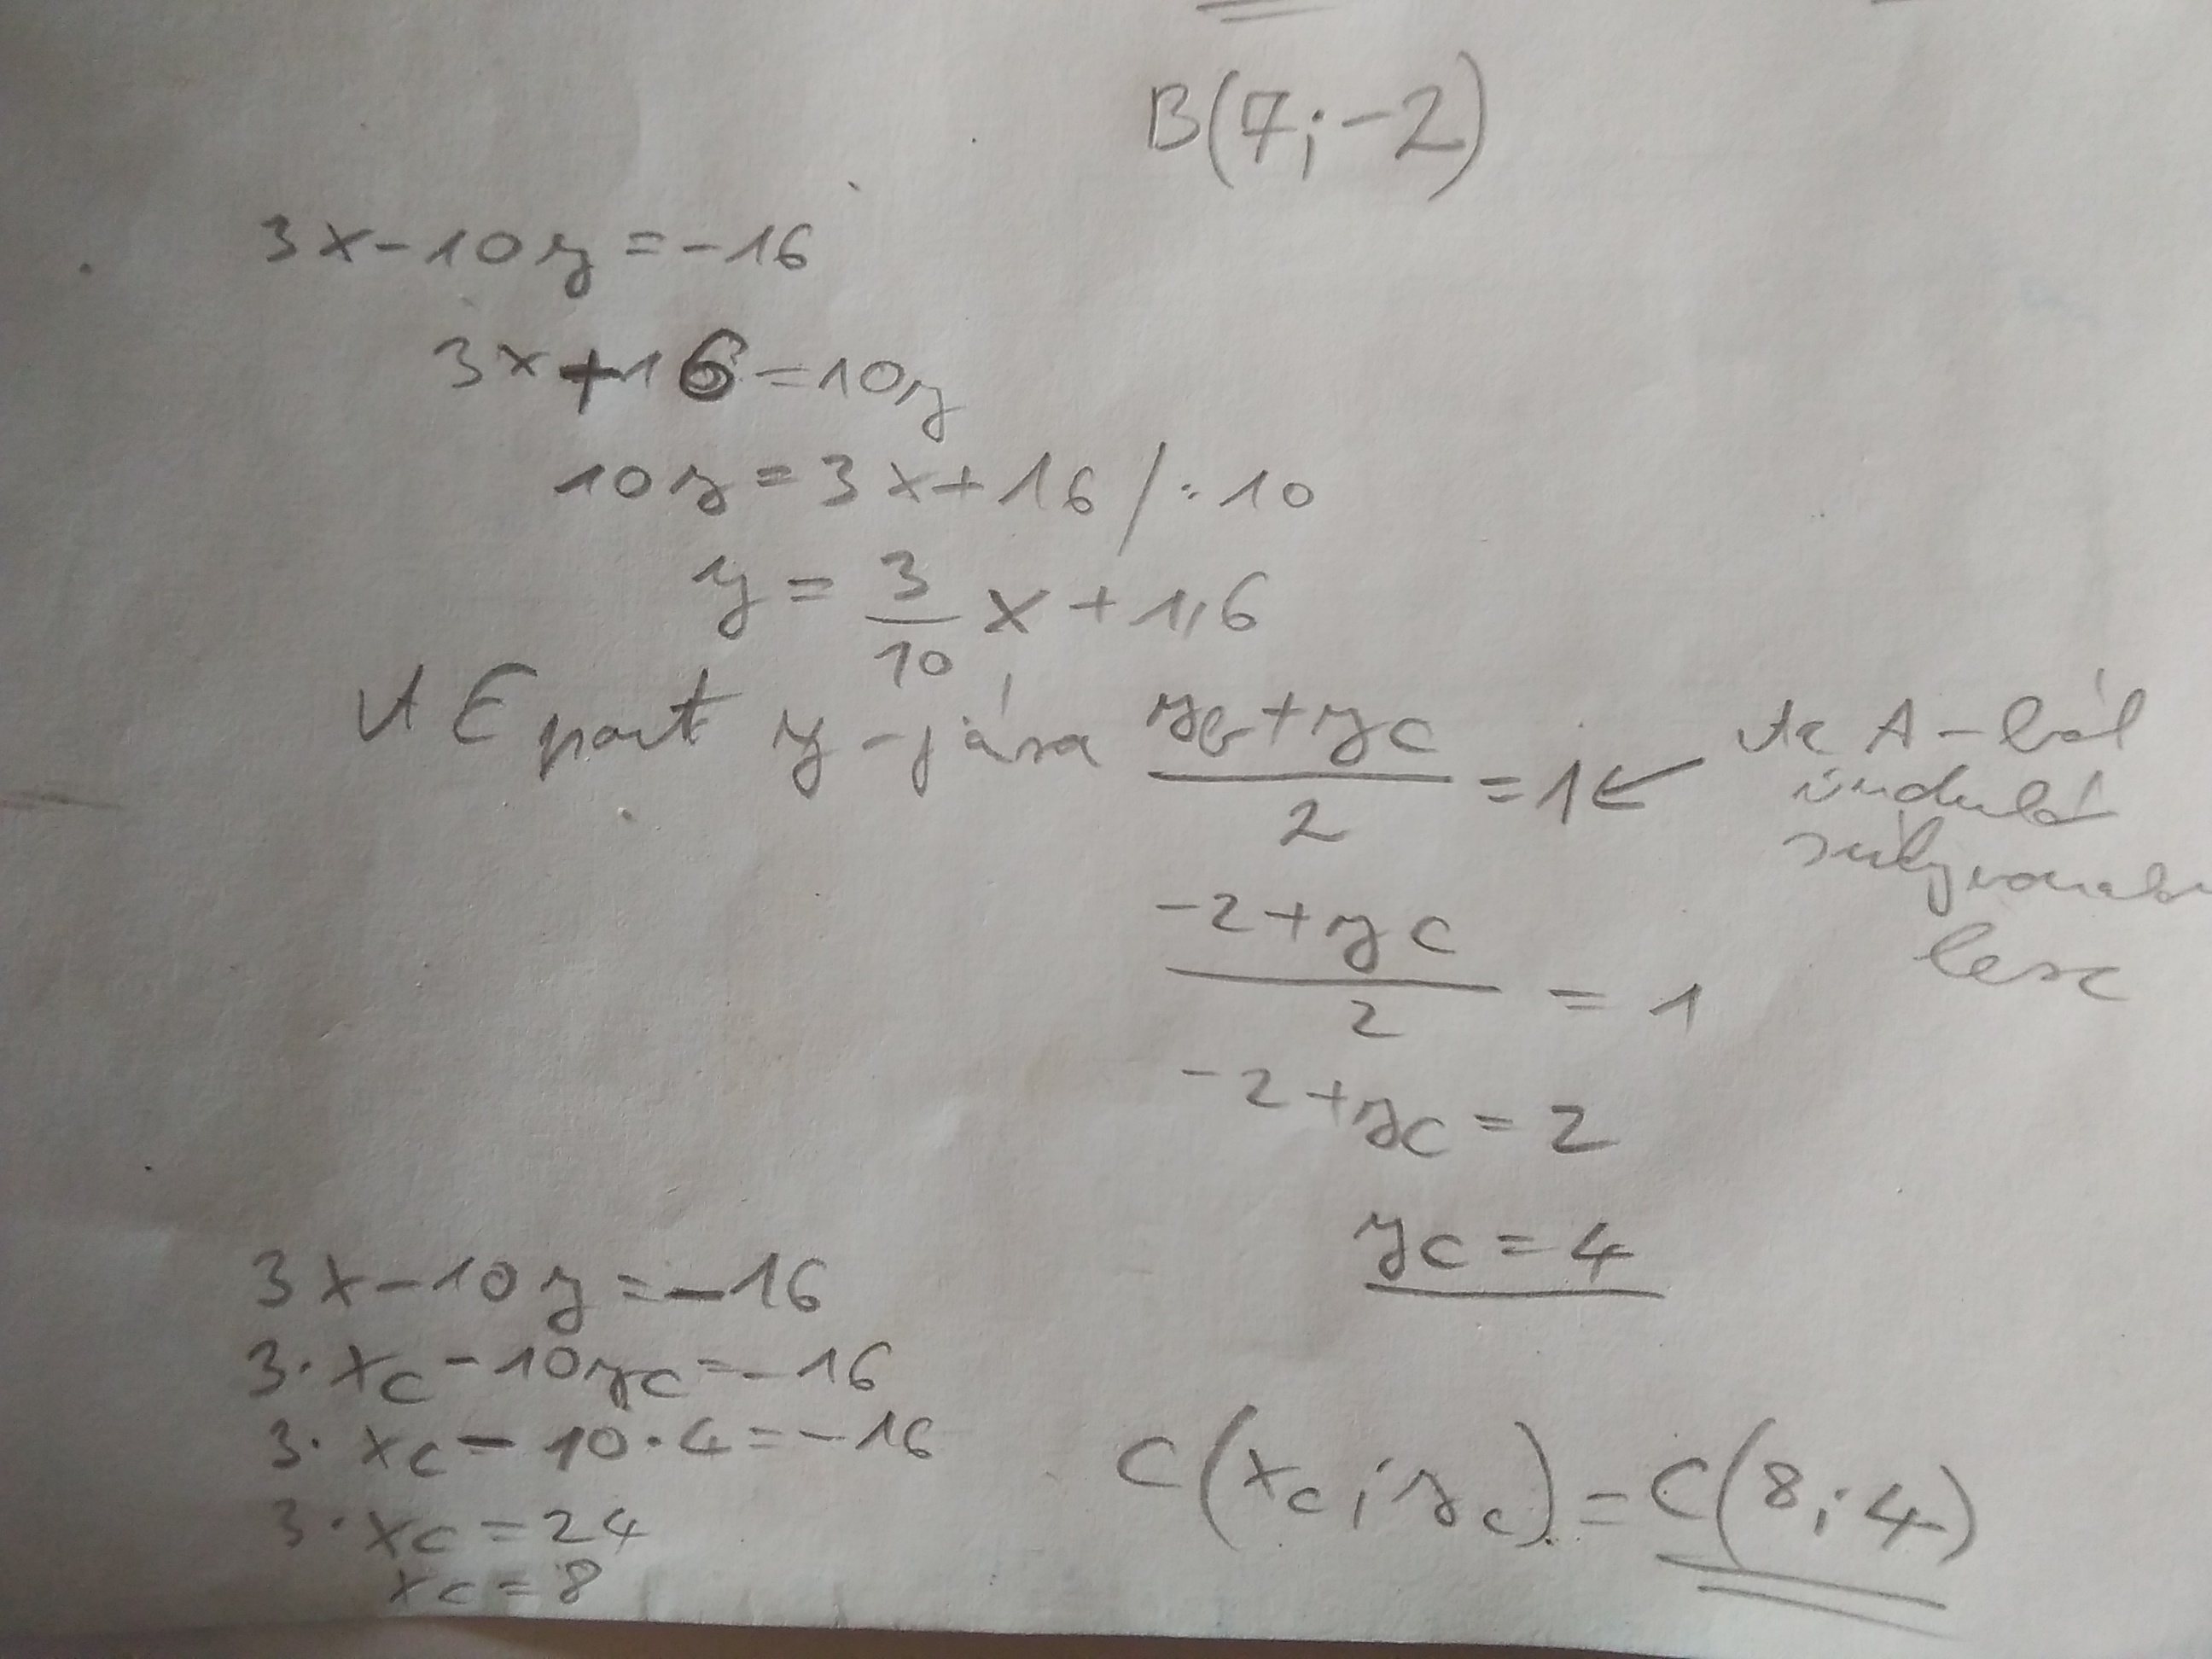 B(7;-2)
3x-10y=-16
3x+16=10y
10y=3x+16/:10
y=3/10x+1,6
A E pont y-jára yb+yc/2=1← Az A-ból
induló
súlyvonal
lesz
-2+yc/2=1
-2+yc=2
yc=4
3x-10y=-16
3·xc-10yc=-16
3·xc-10·4=-16
3·xc=24
xc=8
C(xc;yc)=C(8;4)